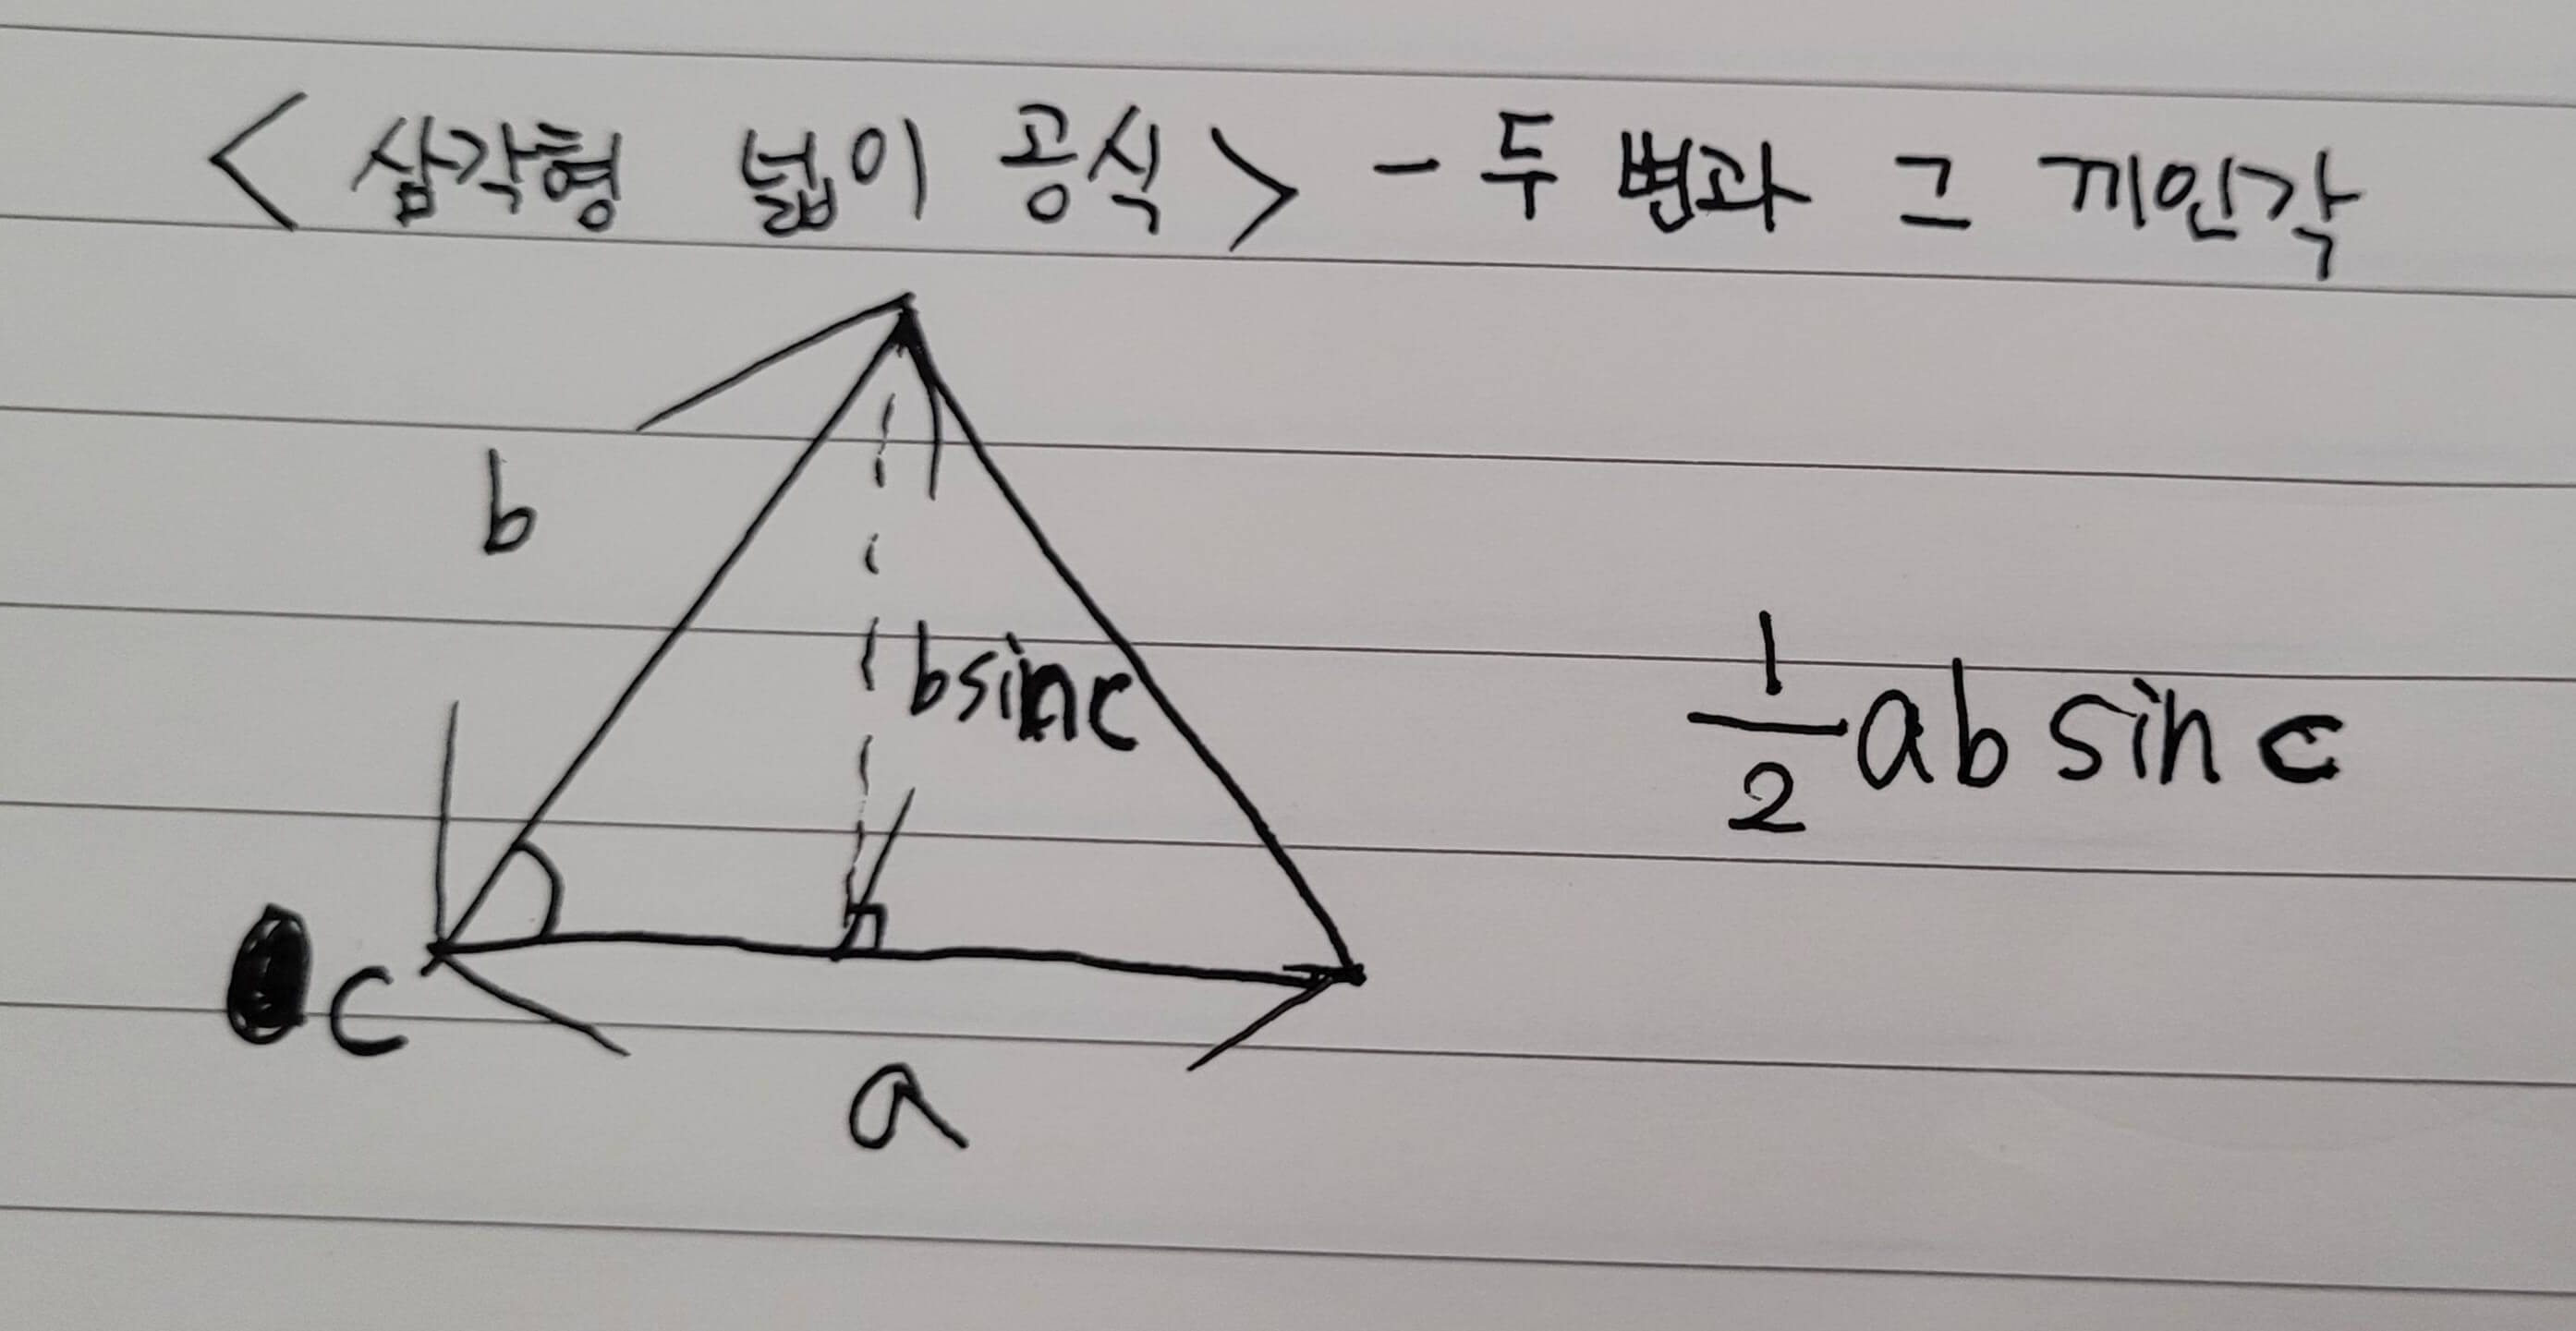 < 삼각형 넓이 공식 > - 두 변과 그 끼인각
b
bsinc
1/2 ab sin c
c
a